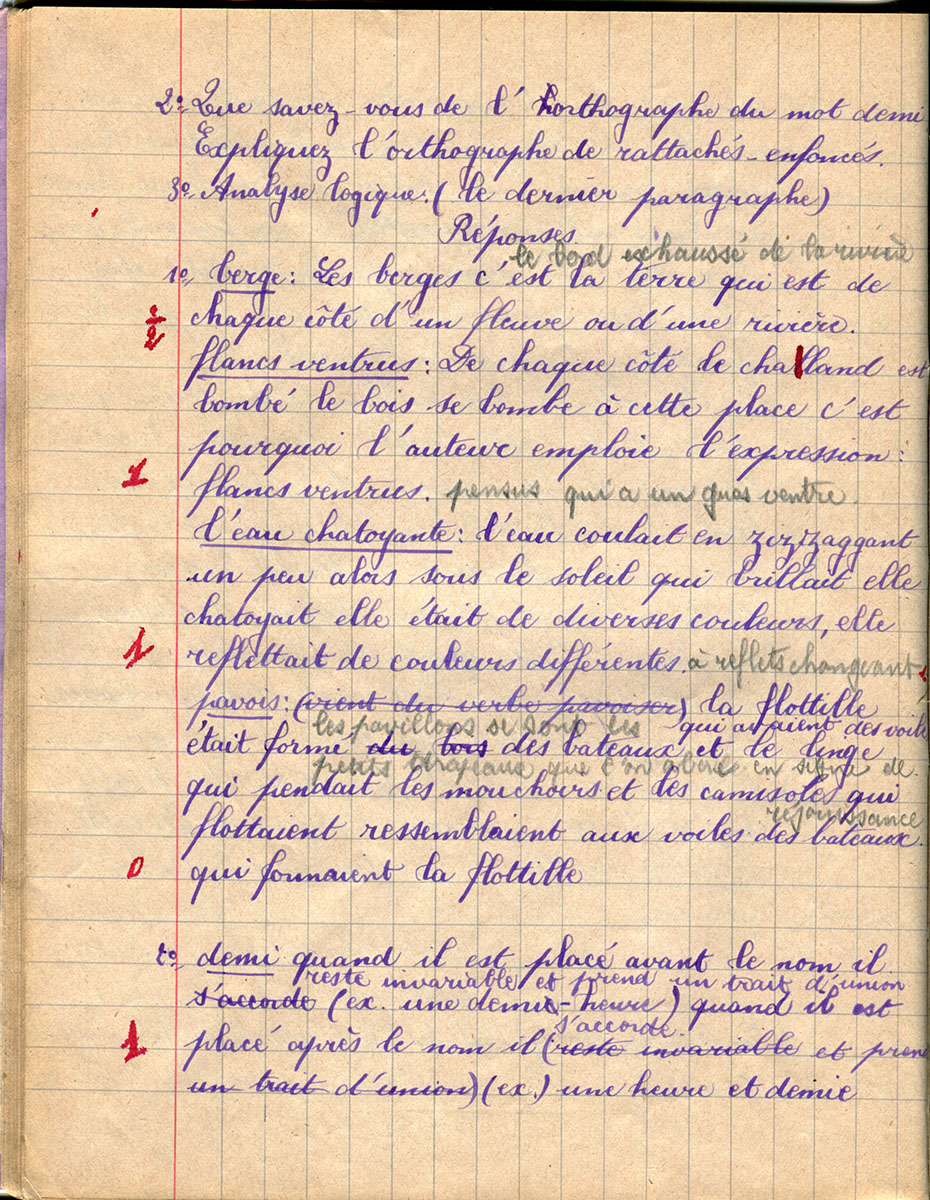 2º Que savez-vous de l'horthographe du mot demi
Expliquez l'orthographe de rattachés - enfoncés.
3º Analyse logique. (le dernier paragraphe)
Réponses
le bord exhaussé de la rivière
1º berge : Les berges c'est la terre qui est de
chaque côté d'un fleuve ou d'une rivière.
1/2
flancs ventrus : De chaque côté le challand est
bombé le bois se bombe à cette place c'est
pourquoi l'auteur emploie l'expression :
1 flancs ventrus. pensus qui a un gros ventre.
l'eau chatoyante : l'eau coulait en zizizaggant
un peu alors sous le soleil qui brillait elle
chatoyait elle était de diverses couleurs, elle
1 reflettait de couleurs différentes. à reflets changeant
pavois : (vient du verbe pavoiser) la flottille
les pavillons se sont les qui avaient des voiles
était formé du bois des bateaux et le linge
petits drapeaux que l'on en signe de
qui pendait les mouchoirs et les camisoles qui
réjouissance
flottaient ressemblaient aux voiles des bateaux.
0 qui formaient la flottille
2º demi quand il est placé avant le nom il
reste invariable et prend un trait d'union
s'accorde (ex. une demie-heure) quand il est
s'accorde.
1 placé après le nom il (reste invariable et pren
un trait d'union) (ex.) une heure et demie